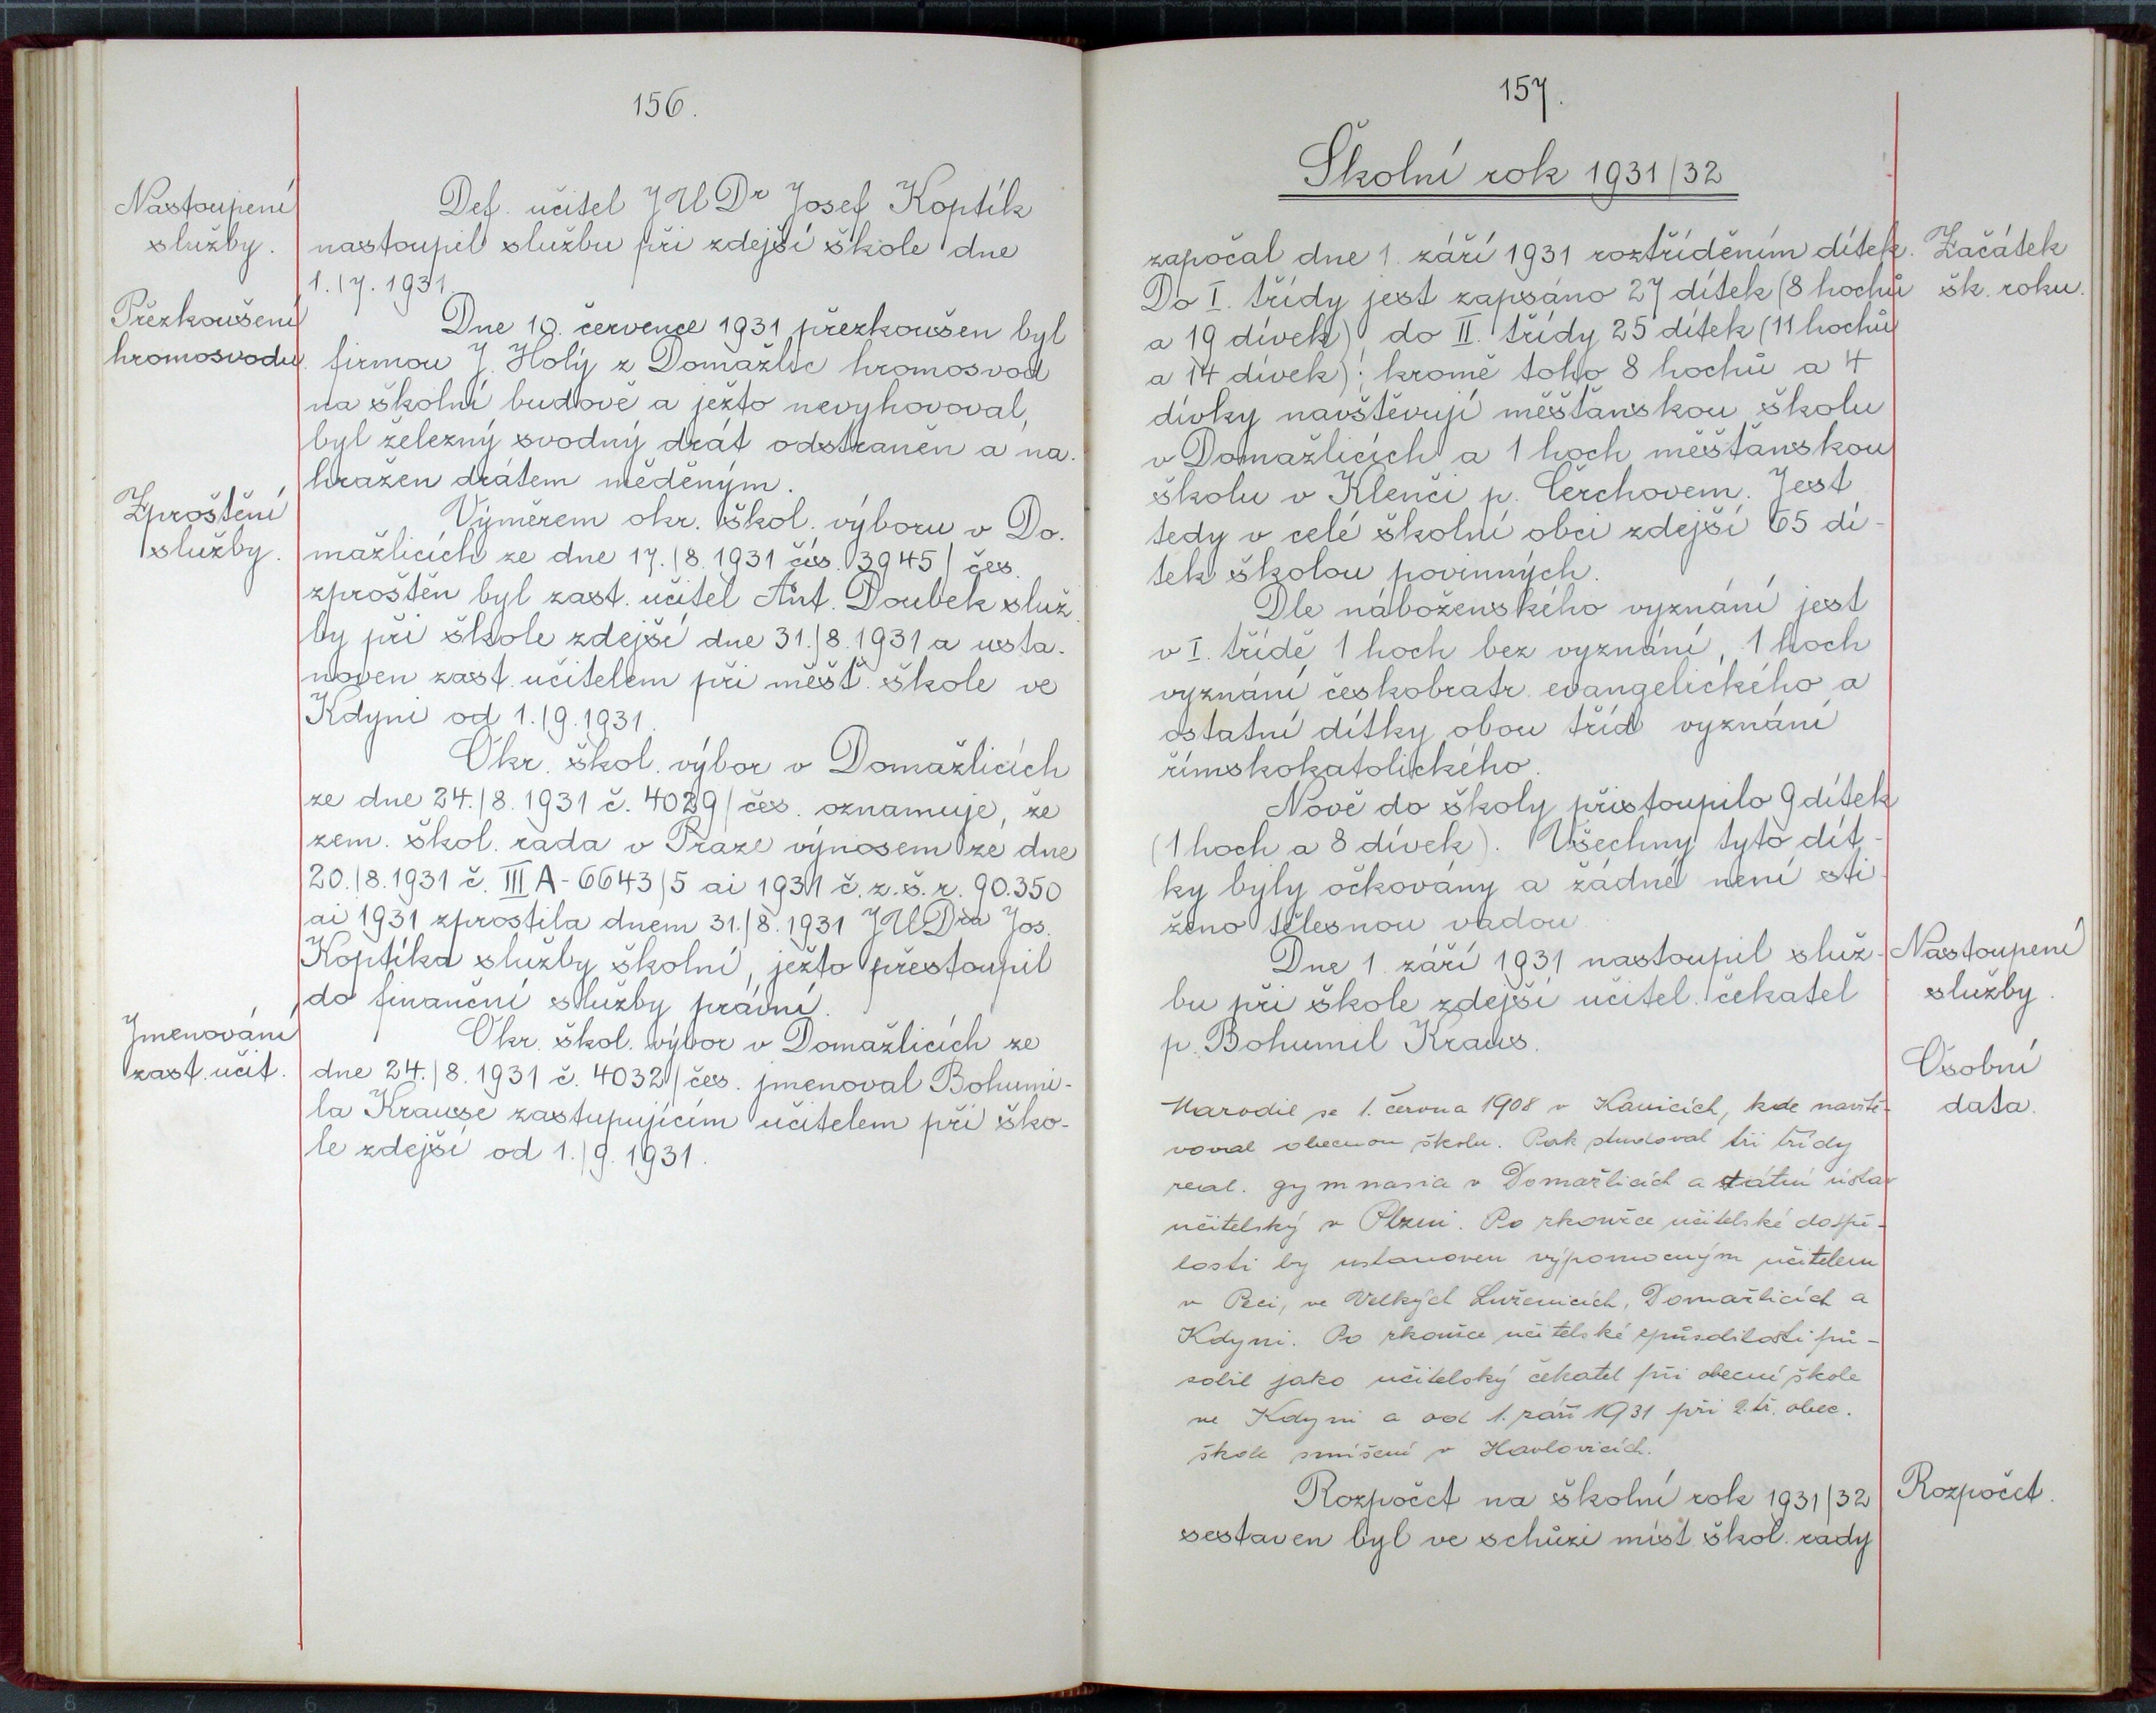 156.
Nastoupení
služby.
Def. učitel JUDr Josef Koptík
nastoupil službu při zdejší škole dne
1./7. 1931.
Přezkoušení
hromosvodu.
Dne 10. července 1931 přezkoušen byl
firmou J. Holý z Domažlic hromosvod
na školní budově a ježto nevyhovoval,
byl železný svodný drát odstraněn a na-
hražen drátem měděným.
Zproštění
služby.
Výměrem okr. škol. výboru v Do-
mažlicích ze dne 17./8. 1931 čís. 3945/čes.
zproštěn byl zast. učitel Ant. Doubek služ-
by při škole zdejší dne 31./8. 1931 a usta-
noven zast. učitelem při měšť. škole ve
Kdyni od 1./9. 1931.
Okr. škol. výbor v Domažlicích
ze dne 24./8. 1931 č. 4029/čes. oznamuje, že
zem. škol. rada v Praze výnosem ze dne
20./8. 1931 č. III A-6643/5 ai 1931 č.z.š.r. 90.350
ai 1931 zprostila dnem 31./8. 1931 JUDra Jos.
Koptíka služby školní, ježto přestoupil
do finanční služby právní.
Jmenování
zast. učit.
Okr. škol. výbor v Domažlicích ze
dne 24./8. 1931 č. 4032/čes. jmenoval Bohumi-
la Krause zastupujícím učitelem při ško-
le zdejší od 1./9. 1931.
157.
Školní rok 1931/32
Začátek
šk. roku.
započal dne 1. září 1931 roztříděním dítek.
Do I. třídy jest zapsáno 27 dítek (8 hochů
a 19 dívek) do II. třídy 25 dítek (11 hochů
a 14 dívek); kromě toho 8 hochů a 4
dívky navštěvují měšťanskou školu
v Domažlicích a 1 hoch měšťanskou
školu v Klenčí p. Čerchovem. Jest
tedy v celé školní obci zdejší 65 dí-
tek školou povinných.
Dle náboženského vyznání jest
v I. třídě 1 hoch bez vyznání, 1 hoch
vyznání českobratr. evangelického a
ostatní dítky obou tříd vyznání
římskokatolického.
Nově do školy přistoupilo 9 dítek
(1 hoch a 8 dívek). Všechny tyto dít-
ky byly očkovány a žádné není sti-
ženo tělesnou vadou.
Nastoupení
služby.
Dne 1. září 1931 nastoupil služ-
bu při škole zdejší učitel. čekatel
p. Bohumil Kraus.
Osobní
data.
Narodil se 1. června 1908 v Kanicích, kde navště-
voval obecnou školu. Pak studoval tři třídy
real. gymnasia v Domažlicích a státní ústav
učitelský v Plzni. Po zkoušce učitelské dospě-
losti by ustanoven výpomocným učitelem
v Peci, ve Velkých Luženicích, Domažlicích a
Kdyni. Po zkoušce učitelské způsobilosti pů-
sobil jako učitelský čekatel při obecné škole
ve Kdyni a od 1. září 1931 při 2.tř. obec.
škole smíšené v Havlovicích.
Rozpočet.
Rozpočet na školní rok 1931/32
sestaven byl ve schůzi míst. škol. rady